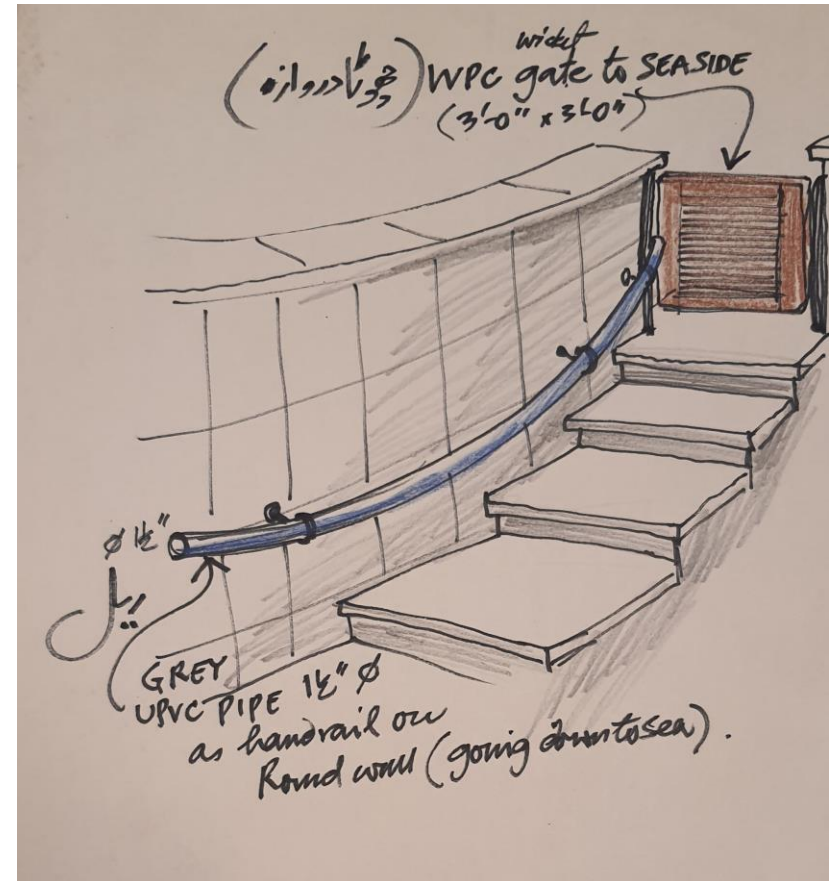 wicket
(چھوٹا دروازہ) WPC gate to SEASIDE
(3'-0" x 3'-0")
ø 1½"
ریل
GREY
UPVC PIPE 1½" ø
as handrail on
Round wall (going down to sea).